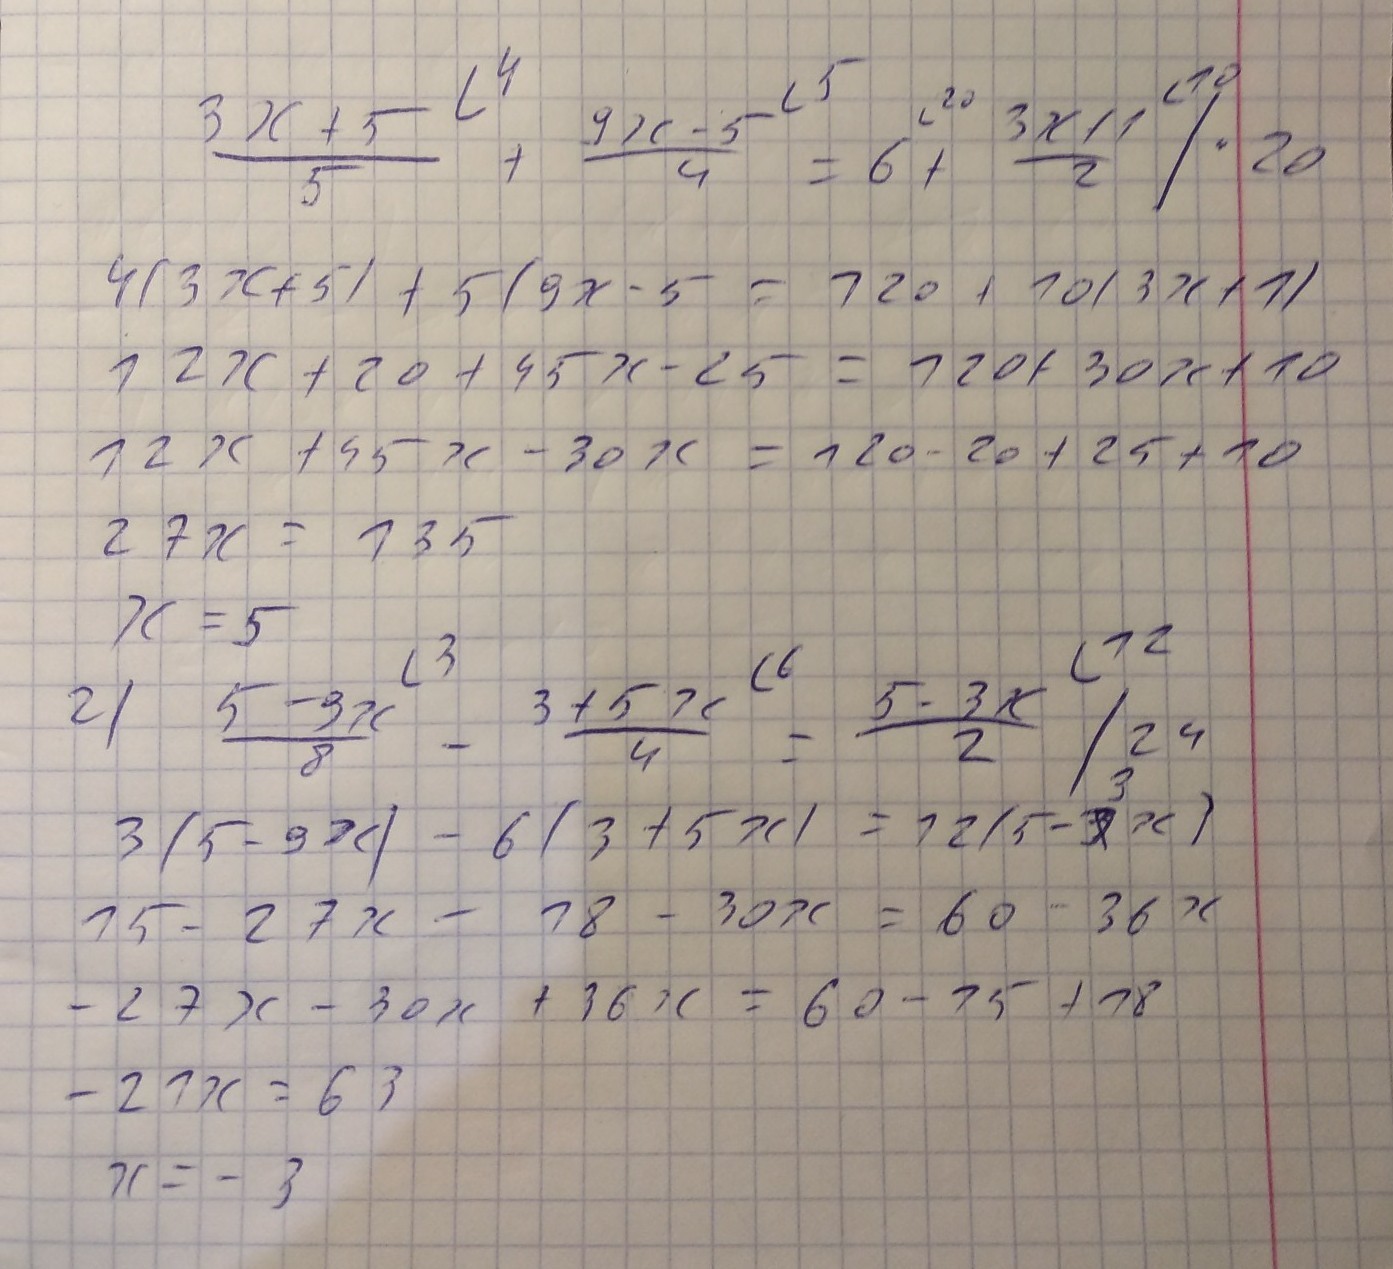 (3x+5)/5 ⌞4 + (9x-5)/4 ⌞5 = 6 ⌞20 + (3x+1)/2 ⌞10 / · 20
4(3x+5) + 5(9x-5 = 120 + 10(3x+1)
12x + 20 + 45x - 25 = 120 + 30x + 10
12x + 45x - 30x = 120 - 20 + 25 + 10
27x = 135
x = 5
2) (5-9x)/8 ⌞3 - (3+5x)/4 ⌞6 = (5-3x)/2 ⌞12 / 24
3(5-9x) - 6(3+5x) = 12(5-3x)
15 - 27x - 18 - 30x = 60 - 36x
-27x - 30x + 36x = 60 - 15 + 18
-21x = 63
x = -3